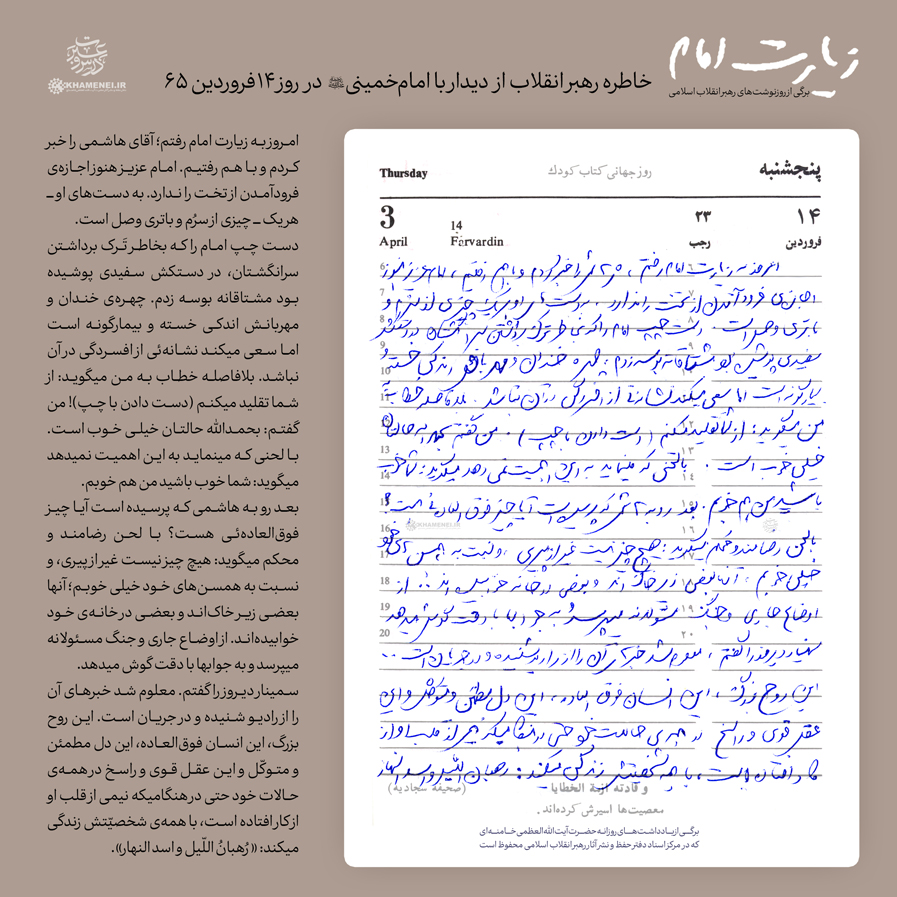 زیارت امام
برگی از روزنوشت‌های رهبر انقلاب اسلامی
خاطره رهبر انقلاب از دیدار با امام‌خمینی در روز ۱۴ فروردین ۶۵
درس و عبرت
KHAMENEI.IR
امروز به زیارت امام رفتم؛ آقای هاشمی را خبر
کردم و با هم رفتیم. امام عزیز هنوز اجازه‌ی
فرودآمدن از تخت را ندارد. به دست‌های او ــ
هر یک ــ چیزی از سرُم و باتری وصل است.
دست چپ امام را که بخاطر تَرک برداشتن
سرانگشتان، در دستکش سفیدی پوشیده
بود مشتاقانه بوسه زدم. چهره‌ی خندان و
مهربانش اندکی خسته و بیمارگونه است
اما سعی میکند نشانه‌ئی از افسردگی در آن
نباشد. بلافاصله خطاب به من میگوید: از
شما تقلید میکنم (دست دادن با چپ)! من
گفتم: بحمدالله حالتان خیلی خوب است.
با لحنی که مینماید به این اهمیت نمیدهد
میگوید: شما خوب باشید من هم خوبم.
بعد رو به هاشمی که پرسیده است آیا چیز
فوق‌العاده‌ئی هست؟ با لحن رضامند و
محکم میگوید: هیچ چیز نیست غیر از پیری، و
نسبت به همسن‌های خود خیلی خوبم؛ آنها
بعضی زیر خاک‌اند و بعضی در خانه‌ی خود
خوابیده‌اند. از اوضاع جاری و جنگ مسئولانه
میپرسد و به جوابها با دقت گوش میدهد.
سمینار دیروز را گفتم. معلوم شد خبرهای آن
را از رادیو شنیده و در جریان است. این روح
بزرگ، این انسان فوق‌العاده، این دل مطمئن
و متوکّل و این عقل قوی و راسخ در همه‌ی
حالات خود حتی در هنگامیکه نیمی از قلب او
از کار افتاده است، با همه‌ی شخصیّتش زندگی
میکند: «رُهبانُ اللّیل و اسد النهار».
پنجشنبه
روز جهانی کتاب کودک
Thursday
۱۴
۲۳
14
3
فروردین
رجب
Farvardin
April
امروز به زیارت امام رفتم، هاشمی را خبر کردم و با هم رفتیم، امام عزیز هنوز
اجازه‌ی فرود آمدن از تخت را ندارد، به دست‌های او هر یک چیزی از سرم و
باتری وصل است. دست چپ امام را که بخاطر ترک برداشتن سرانگشتان در دستکش
سفیدی پوشیده بود مشتاقانه بوسه زدم؛ چهره خندان و مهربانش اندکی خسته و
بیمارگونه است اما سعی میکند نشانه‌ئی از افسردگی در آن نباشد. بلافاصله خطاب به
من میگوید: از شما تقلید میکنم (دست دادن با چپ)! من گفتم بحمدالله حالتان
خیلی خوب است. با لحنی که مینماید به این اهمیت نمی‌دهد میگوید: شما خوب
باشید من هم خوبم. بعد رو به هاشمی که پرسیده است آیا چیز فوق العاده‌ئی هست؟
با لحن رضامند و محکم میگوید: هیچ چیز نیست غیر از پیری، و نسبت به همسن‌های خود
خیلی خوبم، آنها بعضی زیر خاک‌اند و بعضی در خانه خوابیده‌اند ... از
اوضاع جاری و جنگ مسئولانه میپرسد و به جوابها با دقت گوش میدهد
سمینار دیروز را گفتم، معلوم شد خبرهای آن را از رادیو شنیده و در جریان است ...
این روح بزرگ، این انسان فوق العاده، این دل مطمئن و متوکل و این
عقل قوی و راسخ در همه‌ی حالات خود حتی در هنگامیکه نیمی از قلب او از
کار افتاده است، با همه شخصیتش زندگی میکند: رهبان اللیل و اسد النهار
6
7
8
9
10
11
12
13
14
15
16
17
18
19
20
و قادته ازمة الخطایا
(صحیفه سجادیه)
معصیت‌ها اسیرش کرده‌اند.
KHAMENEI.IR
برگـی از یادداشت‌هـای روزانه حضـرت آیت‌الله‌العظمی خـامنه‌ای
که در مرکز اسناد دفتر حفظ و نشر آثار رهبر انقلاب اسلامی محفوظ است